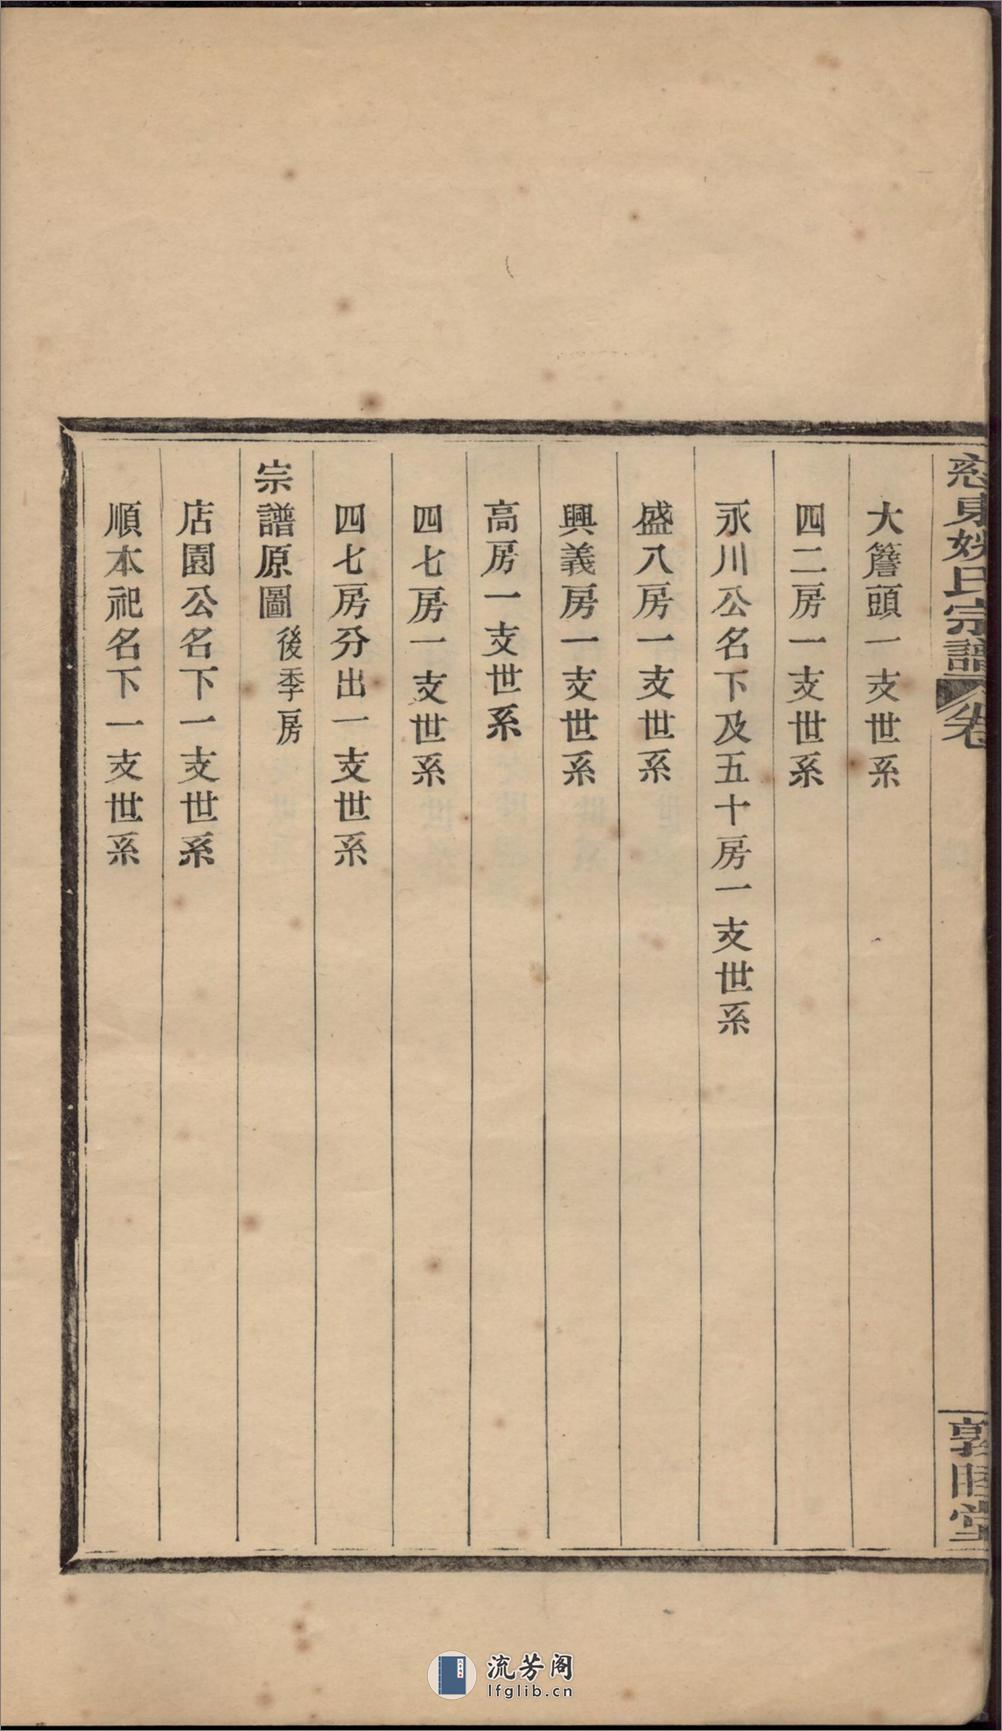 慈東姚氏宗譜 卷
大簷頭一支世系
四二房一支世系
永川公名下及五十房一支世系
盛八房一支世系
興義房一支世系
高房一支世系
四七房一支世系
四七房分出一支世系
宗譜原圖 後季房
店園公名下一支世系
順本祀名下一支世系
敦睦堂
流芳阁
lfglib.cn